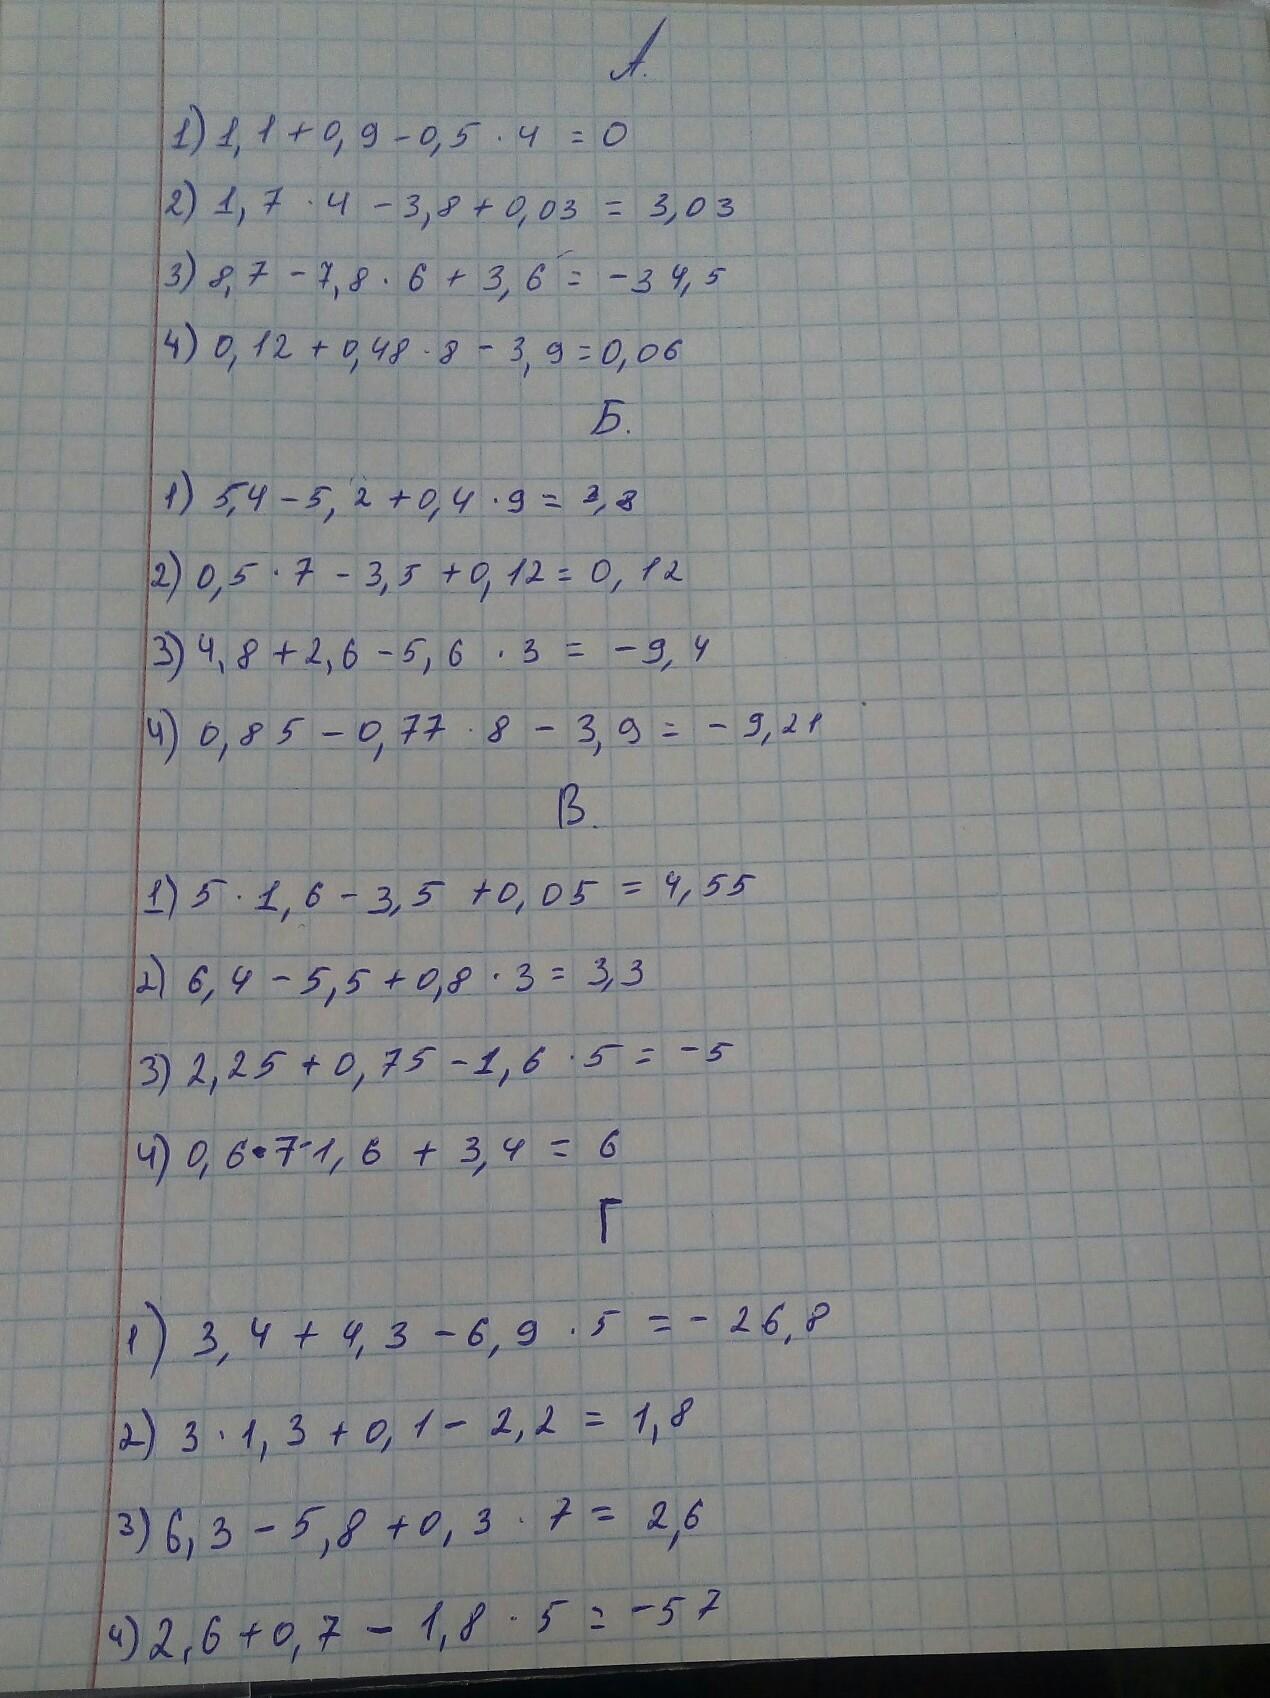 А.
1) 1,1 + 0,9 - 0,5 · 4 = 0
2) 1,7 · 4 - 3,8 + 0,03 = 3,03
3) 8,7 - 7,8 · 6 + 3,6 = -34,5
4) 0,12 + 0,48 · 8 - 3,9 = 0,06
Б.
1) 5,4 - 5,2 + 0,4 · 9 = 3,8
2) 0,5 · 7 - 3,5 + 0,12 = 0,12
3) 4,8 + 2,6 - 5,6 · 3 = -9,4
4) 0,85 - 0,77 · 8 - 3,9 = -9,21
В.
1) 5 · 1,6 - 3,5 + 0,05 = 4,55
2) 6,4 - 5,5 + 0,8 · 3 = 3,3
3) 2,25 + 0,75 - 1,6 · 5 = -5
4) 0,6 · 7 - 1,6 + 3,4 = 6
Г
1) 3,4 + 4,3 - 6,9 · 5 = -26,8
2) 3 · 1,3 + 0,1 - 2,2 = 1,8
3) 6,3 - 5,8 + 0,3 · 7 = 2,6
4) 2,6 + 0,7 - 1,8 · 5 = -57